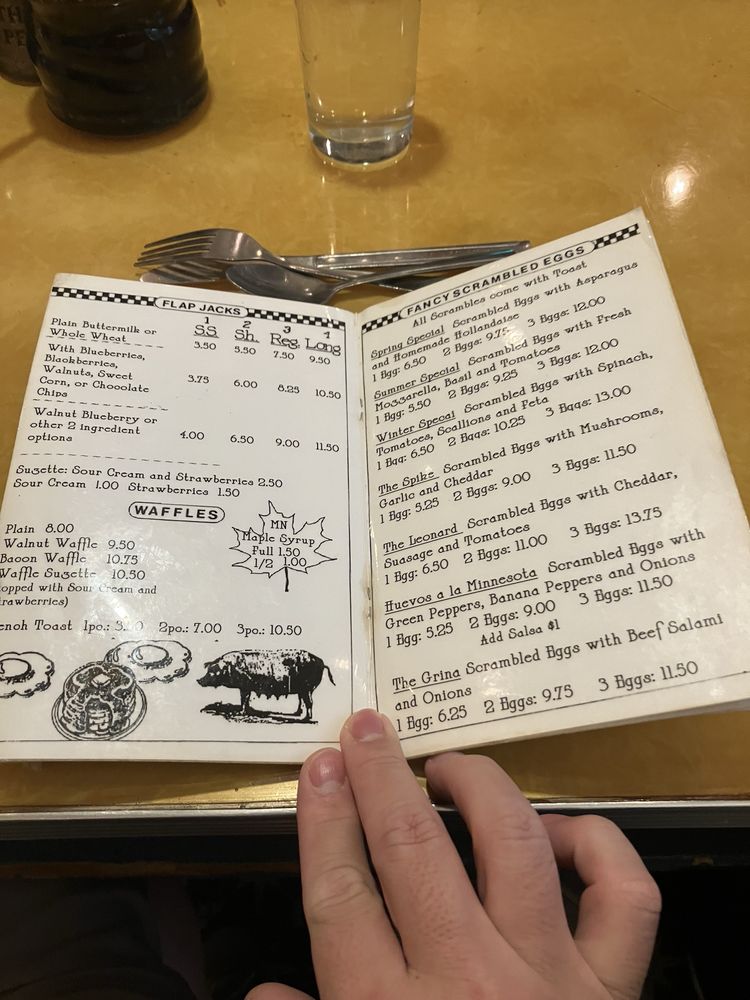 FLAP JACKS
1 2 3 4
SS Sh. Reg. Long
Plain Buttermilk or
Whole Wheat 3.50 5.50 7.50 9.50
With Blueberries,
Blackberries,
Walnuts, Sweet 3.75 6.00 8.25 10.50
Corn, or Chocolate
Chips
Walnut Blueberry or
other 2 ingredient 4.00 6.50 9.00 11.50
options
Suzette: Sour Cream and Strawberries 2.50
Sour Cream 1.00 Strawberries 1.50
WAFFLES
Plain 8.00
Walnut Waffle 9.50
Bacon Waffle 10.75
Waffle Suzette 10.50
opped with Sour Cream and
trawberries)
MN
Maple Syrup
Full 1.50
1/2 1.00
ench Toast 1pc.: 2pc.: 7.00 3pc.: 10.50
FANCY SCRAMBLED EGGS
All Scrambles come with Toast
Spring Special Scrambled Eggs with Asparagus
and Homemade Hollandaise
1 Egg: 6.50 2 Eggs: 9.75 3 Eggs: 12.00
Summer Special Scrambled Eggs with Fresh
Mozzarella, Basil and Tomatoes
1 Egg: 5.50 2 Eggs: 9.25 3 Eggs: 12.00
Winter Specal Scrambled Eggs with Spinach,
Tomatoes, Scallions and Feta
1 Egg: 6.50 2 Eggs: 10.25 3 Eggs: 13.00
The Spike Scrambled Eggs with Mushrooms,
Garlic and Cheddar
1 Egg: 5.25 2 Eggs: 9.00 3 Eggs: 11.50
The Leonard Scrambled Eggs with Cheddar,
Suasage and Tomatoes
1 Egg: 6.50 2 Eggs: 11.00 3 Eggs: 13.75
Huevos a la Minnesota Scrambled Eggs with
Green Peppers, Banana Peppers and Onions
1 Egg: 5.25 2 Eggs: 9.00 3 Eggs: 11.50
Add Salsa $1
The Grina Scrambled Eggs with Beef Salami
and Onions
1 Egg: 6.25 2 Eggs: 9.75 3 Eggs: 11.50